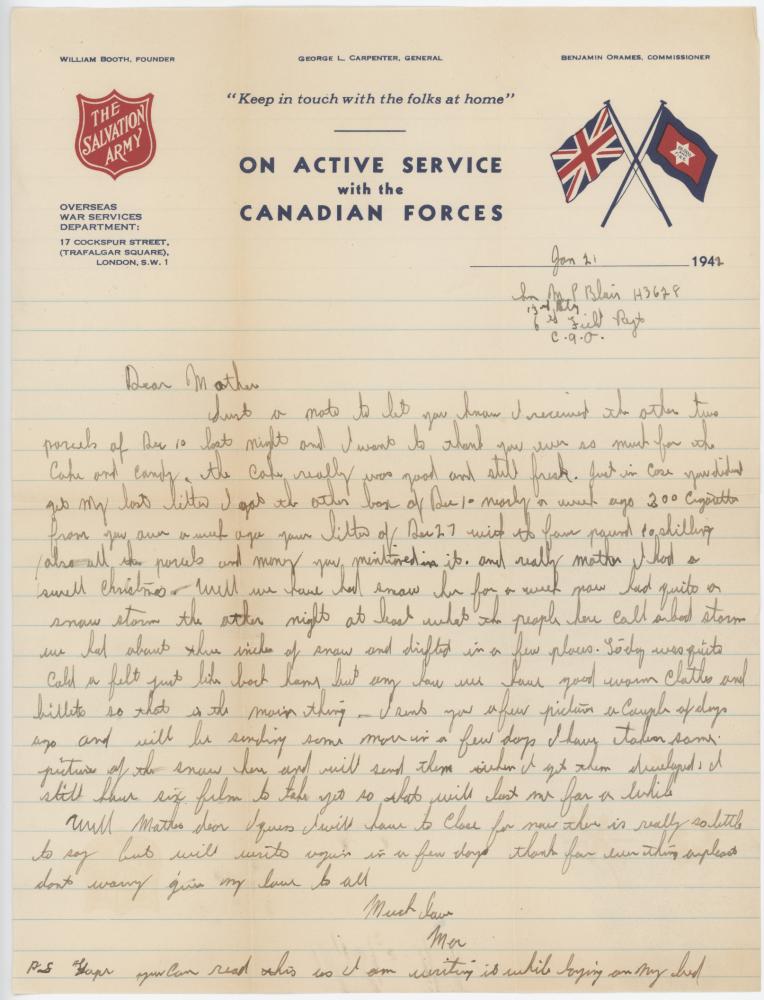 WILLIAM BOOTH, FOUNDER
GEORGE L. CARPENTER, GENERAL
BENJAMIN ORAMES, COMMISSIONER
THE
SALVATION
ARMY
"Keep in touch with the folks at home"
ON ACTIVE SERVICE
with the
CANADIAN FORCES
OVERSEAS
WAR SERVICES
DEPARTMENT:
17 COCKSPUR STREET,
(TRAFALGAR SQUARE),
LONDON, S.W. 1
Jan 21 1942
M P Blair H3628
13th Bty
6 Field Regt
C.A.O.
Dear Mother
Just a note to let you know I received the other two
parcels of Dec 10 last night and I want to thank you ever so much for the
Cake and candy, the cake really was good and still fresh. Just in case you didnt
get my last letter I got the other box of Dec 10 nearly a week ago 300 Cigaretts
from you over a week ago your letter of Dec 27 with the four pound 10 shilling
also all the parcels and money you mentioned in it. and really mother I had a
swell Christmas. Well we have had snow her for a week now had quite a
snow storm the other night at least what the people here call a bad storm
we had about three inches of snow and drifted in a few places. Today was quite
cold a felt just like back home but any how we have good warm clothes and
billets so that is the main thing - I sent you a few picture a couple of days
ago and will be sending some more in a few days I have taken some
picture of the snow here and will send them when I get them developed, I
still have six film to take yet so that will last me for a while
Well Mother dear I guess I will have to close for now there is really so little
to say but will write again in a few days thank for everything
dont worry give my love to all
Much love
Mer
P-S Hope you can read this as I am writing is while laying on my bed